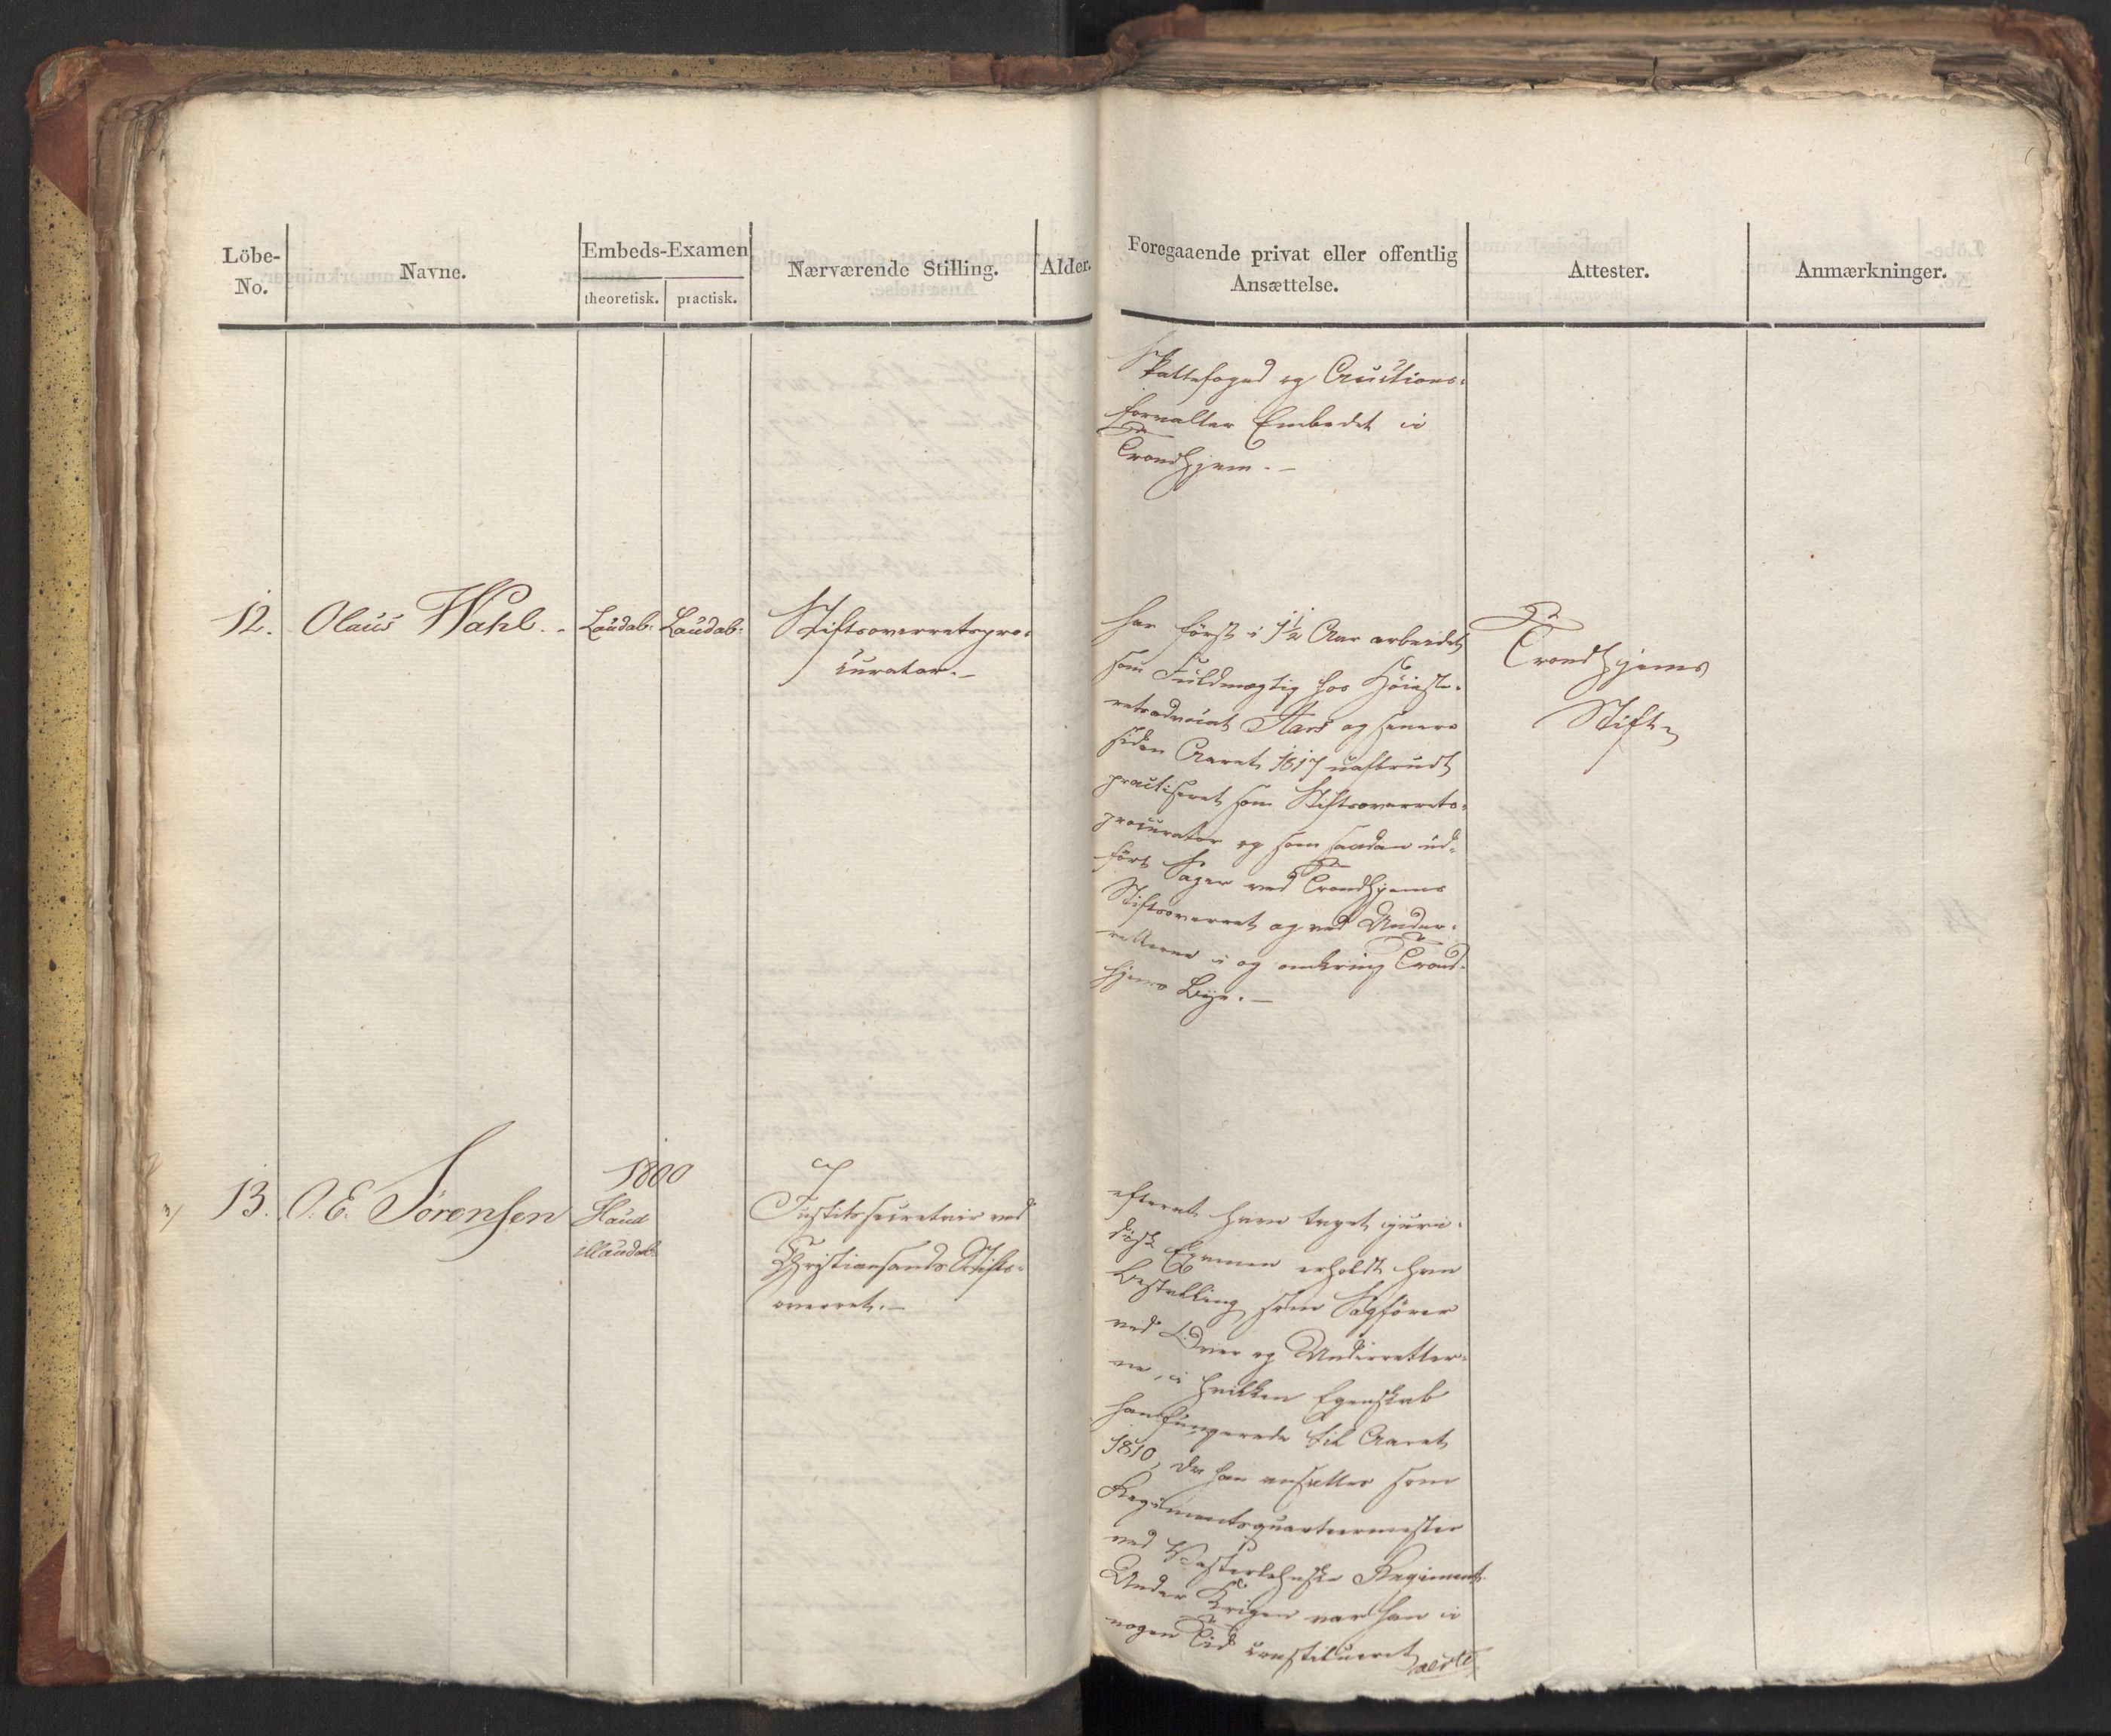 Löbe-
No.
Navne.
Embeds-Examen
theoretisk.
practisk.
Nærværende Stilling.
Alder.
Foregaaende privat eller offentlig
Ansættelse.
Attester.
Anmærkninger.
Skattefoged og Auctions-
forvalter Embedet i
Trondhjem. —
12.
Olaus Wahl. -
Laudab:
Laudab:
Stiftsoverretspro-
curator. —
har först i 1½ Aar arbeidet
som Fuldmægtig hos Höieste-
retsadvocat Aars og senere
siden Aaret 1817 uafbrudt
practiseret som Stiftsoverrets-
procurator og som saadan ud-
fört Sager ved Trondhjems
Stiftsoverret og ved Under-
retterne i og omkring Trond-
hjems Bye. —
Trondhjems
Stift
13.
O. E. Sörensen
1800
Haud
illaudab:
Justitssecretair ved
Christiansands Stifts-
overret. —
efterat have taget juri-
disk Examen erholdt han
Bestalling som Sagförer
ved Over og Underretter-
ne, i hvilken Egenskab
han fungerede til Aaret
1810, da han ansattes som
Regimentsquarteermester
ved Vesterlehnske Regiment.
Under Krigen var han i
nogen Tid constitueret